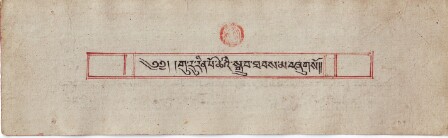 ༄༅། །གུ་རུ་རིན་པོ་ཆེའི་སྒྲུབ་ཐབས་མ་བཞུགས་སོ།།